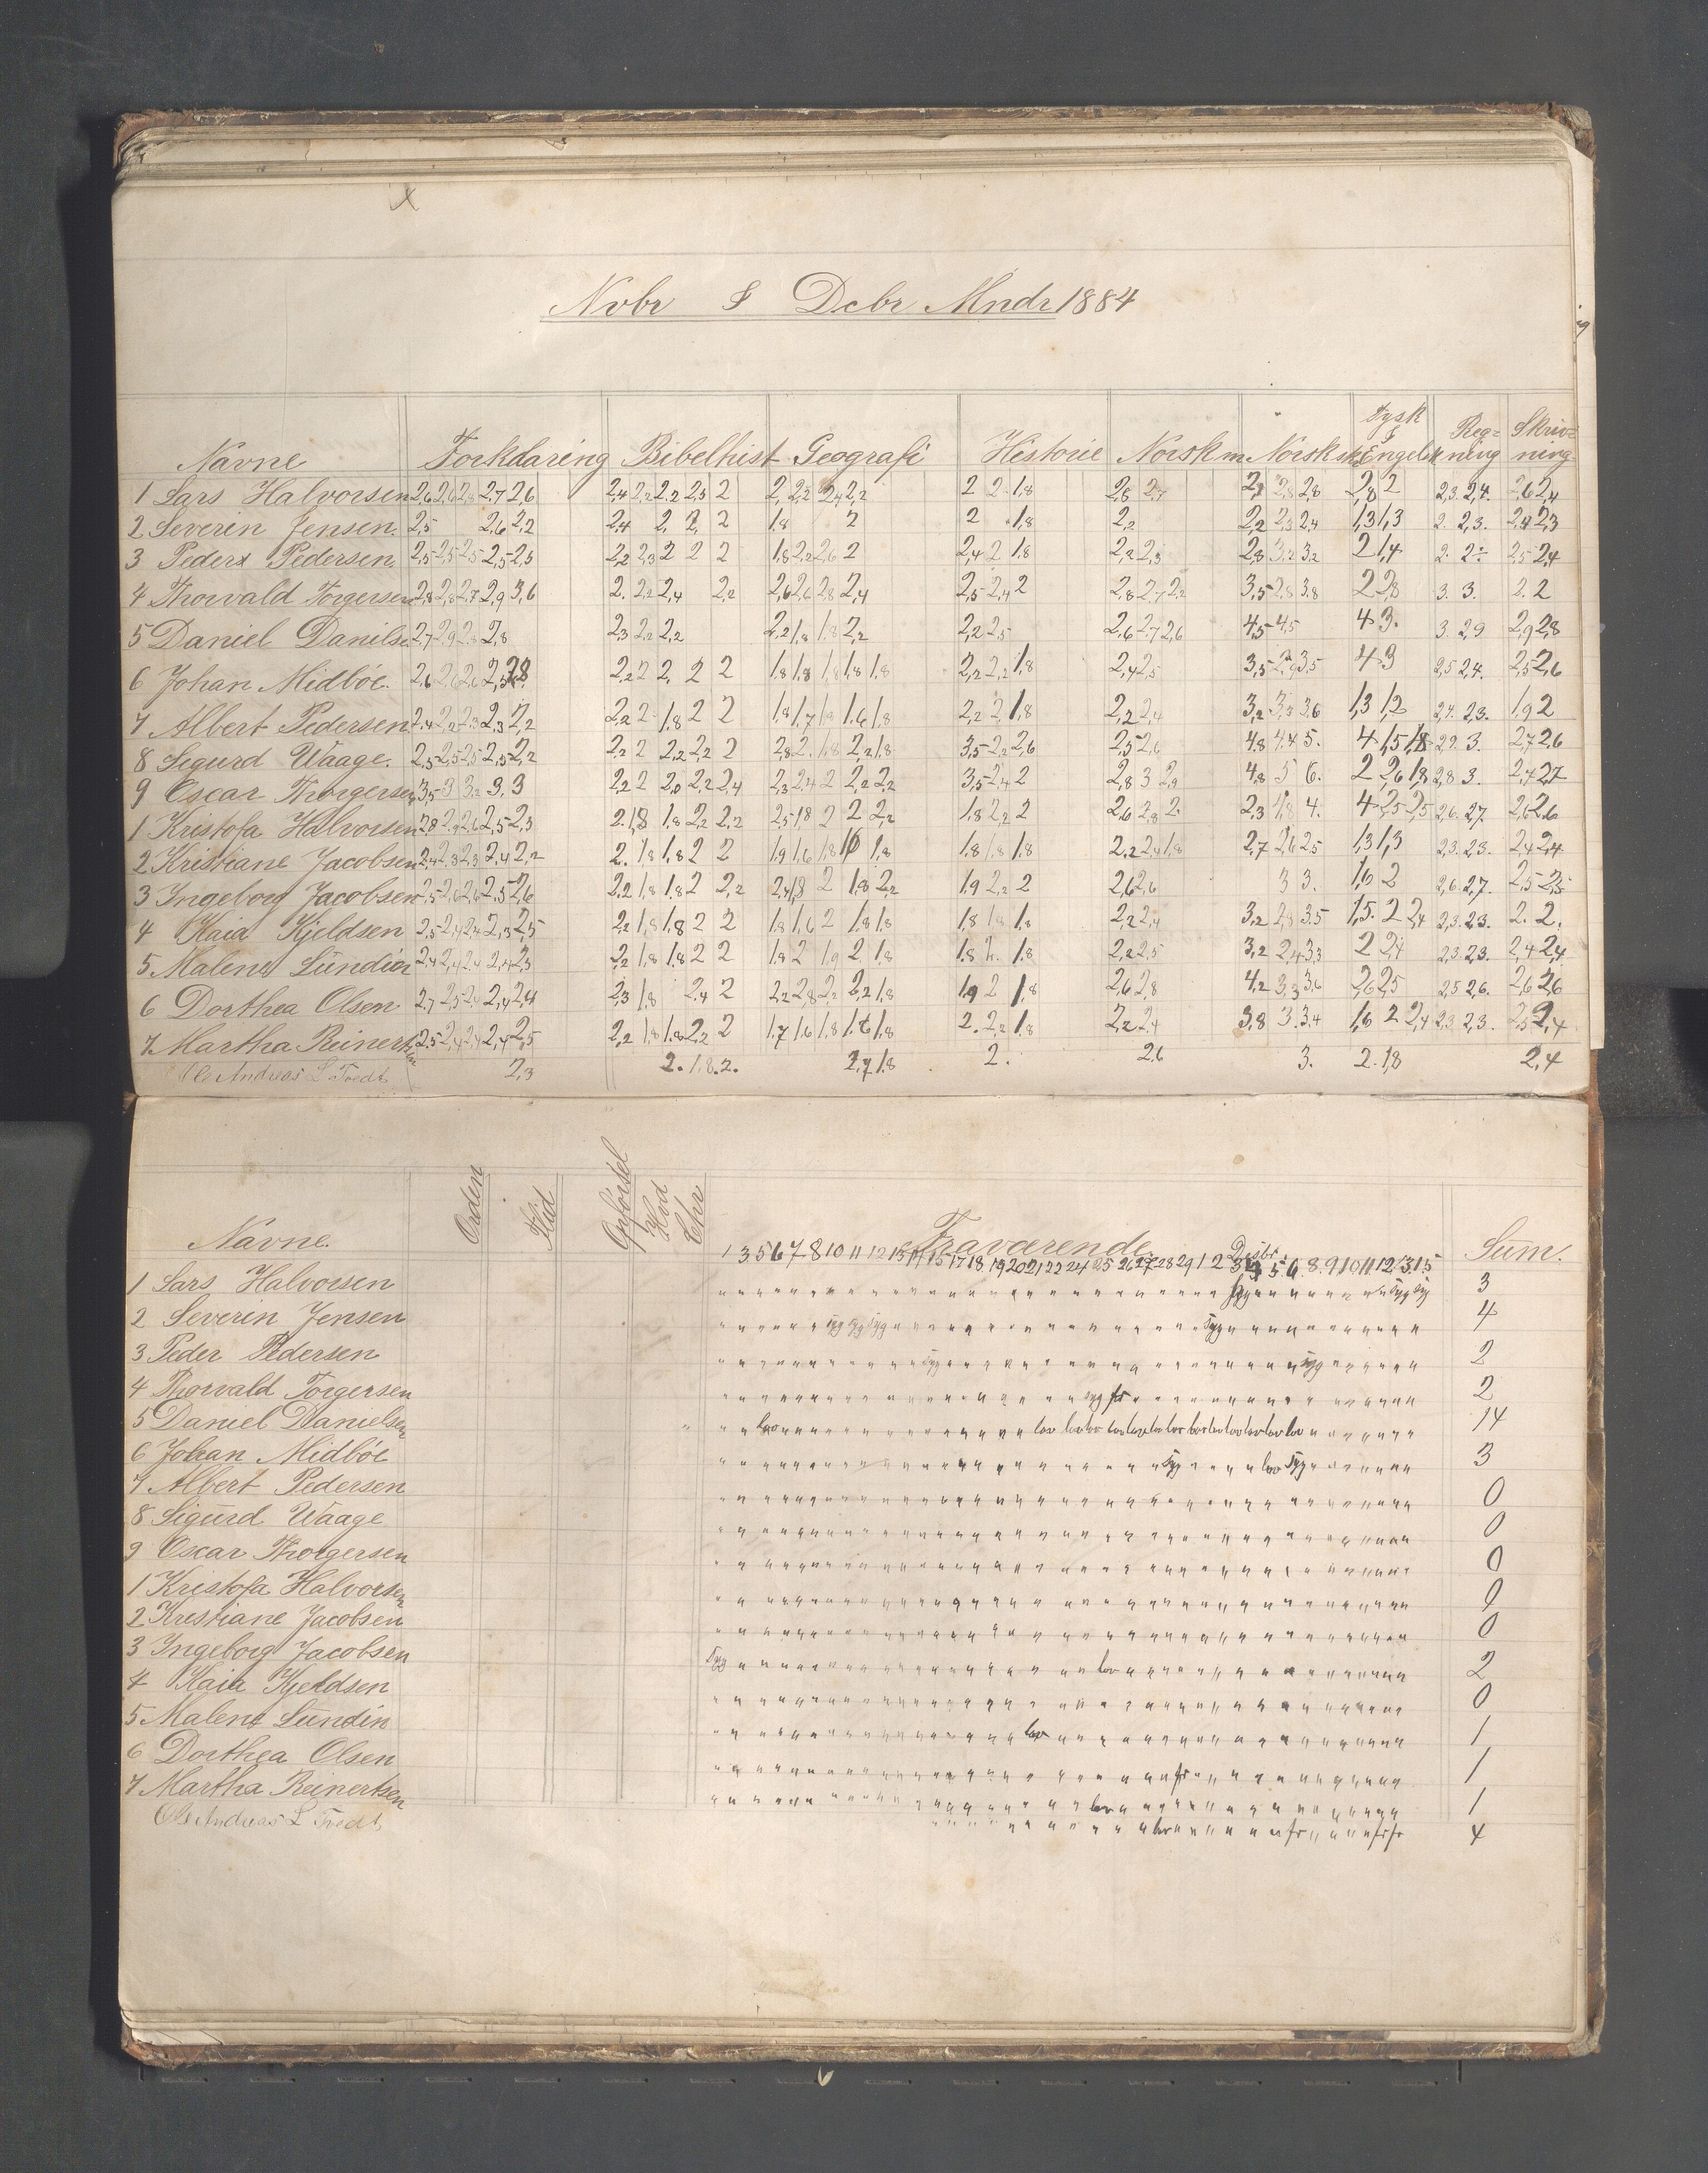 Nvbr & Dcbr Mndr 1884
Navne Forklaring Bibelhist Geografi Historie Norsk m Norsk sk Tysk & Engelsk Reg= ning Skriv= ning
1 Lars Halvorsen 2,6 2,6 2,8 2,7 2,6 2,4 2,2 2,2 2,3 2 2, 2,2 2,4 2,2 2 2 1,8 2,8 2,7 2,8 2,8 2,8 2 2,3 2,4 2,6 2,4
2 Severin Jensen 2,5 2,6 2,2 2,4 2, 2, 2 1,8 2 2 1,8 2,2 2,2 2,3 2,4 1,3 1,3 2. 2,3. 2,4 2,3
3 Peder Pedersen 2,5 2,5 2,5 2,5 2,5 2,2 2,3 2 2 2 1,8 2,2 2,6 2 2,4 2 1,8 2,2 2,3 2,8 3,2 3,2 2 1,4 2. 2 2,5 2,4
4 Thorvald Torgersen 2,8 2,8 2,7 2,9 3,6 2. 2,2 2,4 2,2 2,6 2,6 2,8 2,4 2,5 2,4 2 2,8 2,7 2,2 3,5 2,8 3,8 2 2,8 3. 3. 2. 2
5 Daniel Danilsen 2,7 2,9 2,8 2,8 2,3 2,2 2,2 2,2 1,8 1,8 2,2 2,2 2,5 2,6 2,7 2,6 4,5 4,5 4 3. 3. 2,9 2,9 2,8
6 Johan Midböe. 2,6 2,6 2,6 2,5 2,8 2,2 2 2, 2 2 1,8 1,8 1,8 1,8 1,8 2,2 2,2 1,8 2,4 2,5 3,5 3,5 4 3 2,5 2,4. 2,5 2,6
7 Albert Pedersen 2,4 2,2 2,3 2,3 2,2 2,2 2 1,8 2 2 1,8 1,7 1,8 1,6 1,8 2,2 2, 1,8 2,2 2,4 3,2 3,3 3,6 1,3 1,2 2,4. 2,3. 1,9 2
8 Sigurd Waage. 2,5 2,5 2,5 2,5 2,2 2,2 2 2,2 2,2 2 2,8 2. 1,8 2,2 1,8 3,5 2,2 2,6 2,5 2,6 4,8 4,4 5. 4 1,5 1,8 2,2. 3. 2,7 2,6
9 Oscar Thorgersen 3,5 3 3,2 3. 3 2,2 2 2,0 2,2 2,4 2,3 2,4 2 2,2 2,2 3,5 2,4 2 2,8 3 2,9 4,8 5 6. 2 2,6 1,8 2,8 3. 2,7 2,7
1 Kristofa Halvorsen 2,8 2,9 2,6 2,5 2,3 2. 1,8 1,8 2,2 2,2 2,5 1,8 2 2 2,2 1,8 2,2 2 2,6 2,8 2. 2,3 1,8 4. 4 2,5 2,5 2,6. 2,7 2,6 2,6
2 Kristiane Jacobsen 2,4 2,3 2,3 2,4 2,2 2. 1,8 1,8 2 2 1,9 1,6 1,8 1,6 1,8 1,8 1,8 1,8 2,2 2,4 1,8 2,7 2,6 2,5 1,3 1,3 2,3. 2,3. 2,4 2,4
3 Ingeborg Jacobsen 2,5 2,6 2,6 2,5 2,6 2,2 1,8 1,8 2 2,2 2,4 1,8 2 1,8 2,2 1,9 2,2 2 2,6 2,6 3 3. 1,6 2 2,6. 2,7. 2,5 2,5
4 Kaia Kjeldsen 2,5 2,4 2,4 2,3 2,5 2,2 1,8 1,8 2 2 1,8 1,6 2 1,8 1,8 1,8 1,8 1,8 2,2 2,4 3,2 2,8 3,5 1,5. 2 2,4 2,3. 2,3. 2. 2.
5 Malene Lündin 2,4 2,4 2,4 2,4 2,3 2,2 1,8 1,8 2 2 1,8 2 1,9 2 1,8 1,8 2. 1,8 2,2 2,5 3,2 2,4 3,3 2 2,4 2,3. 2,3. 2,4 2,4
6 Dorthea Olsen 2,7 2,5 2,4 2,4 2,4 2,3 1,8 2,4 2 2,2 2,8 2,2 2,2 1,8 1,9 2 1,8 2,6 2,8 4,2 3,3 3,6 2,6 2,5 2,5 2,6. 2,6 2,6
7 Martha Reinertsen 2,5 2,4 2,4 2,4 2,5 2,2 1,8 1,8 2,2 2 1,7 1,6 1,8 1,6 1,8 2. 2,2 1,8 2,2 2,4 3,8 3. 3,4 1,6 2 2,4 2,3 2,3. 2,5 2,4
Ole Andreas L Tvedt 2,3 2. 1,8. 2. 2,7 1,8 2. 2,6 3. 2. 1,8 2,4
Navne. Orden Flid Opförsel Hvd Lehr Fraværende Dcbr Sum.
1 3 5 6 7 8 10 11 12 13 14 15 17 18 19 20 21 22 24 25 26 27 28 29 1 2 3 4 5 6 8 9 10 11 12 13 15
1 Lars Halvorsen syg syg syg 3
2 Severin Jensen syg syg syg syg 4
3 Peder Pedersen syg syg 2
4 Thorvald Torgersen syg fr 2
5 Danıel Danielsen lov lov lov lov lov lov lov lov lov lov lov lov lov lov 14
6 Johan Midböe syg lov syg 3
7 Albert Pedersen 0
8 Sigürd Waage 0
9 Oscar Thorgersen 0
1 Kristofa Halvorsen 0
2 Kristiane Jacobsen 0
3 Ingeborg Jacobsen syg lov 2
4 Kaia Kjeldsen 0
5 Malene Lündin lov 1
6 Dorthea Olsen fr 1
7 Martha Reinertsen lov 1
Ole Andreas L Tvedt lov fr fr fr 4